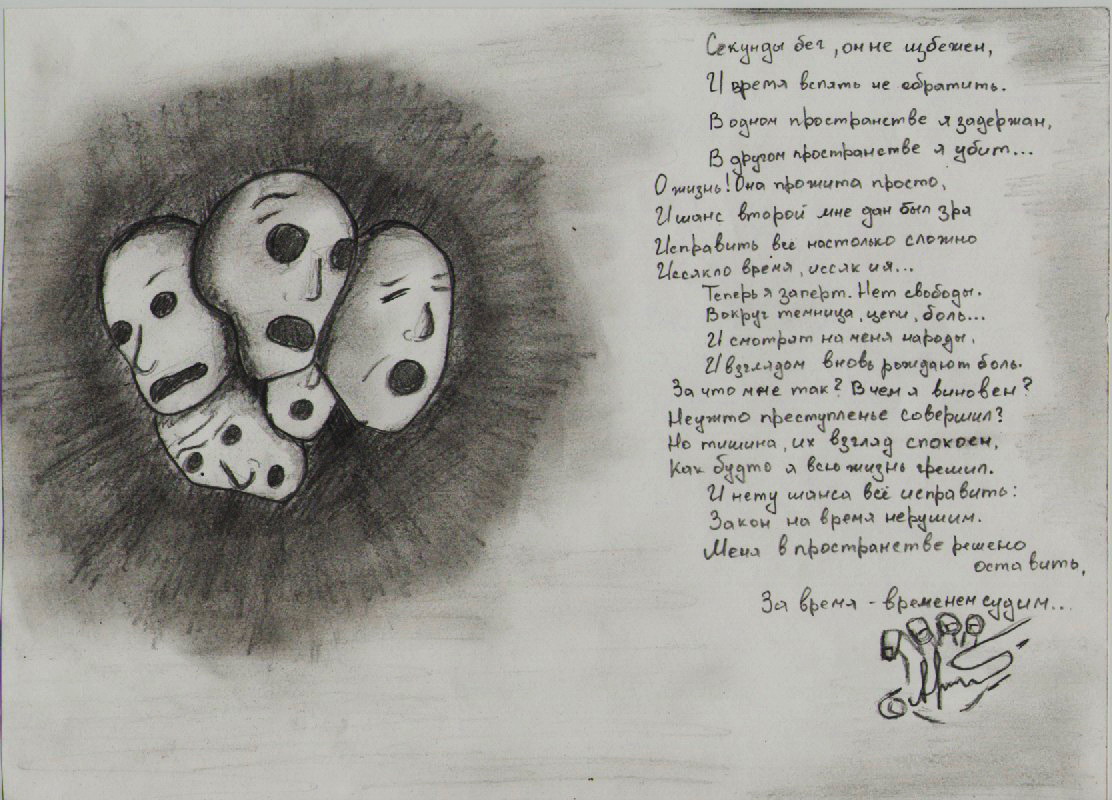 Секунды бег, он не избежен,
И время вспять не обратить.
В одном пространстве я задержан,
В другом пространстве я убит...
О жизнь! Она прожита просто,
И шанс второй мне дан был зря
Исправить все настолько сложно
Иссякло время, иссяк и я...
Теперь я заперт. Нет свободы.
Вокруг темница, цепи, боль...
И смотрят на меня народы,
И взглядом вновь рождают боль.
За что мне так? В чем я виновен?
Неужто преступленье совершил?
Но тишина, их взгляд спокоен,
Как будто я всю жизнь грешил.
И нету шанса всё исправить:
Закон на время нерушим.
Меня в пространстве решено
оставить,
За время - временем судим...
©